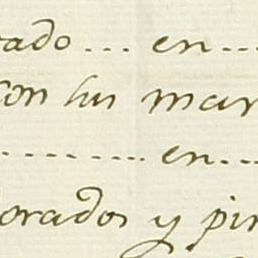 rado ... en ...
con sus mar
........... en ...
dorados y pin